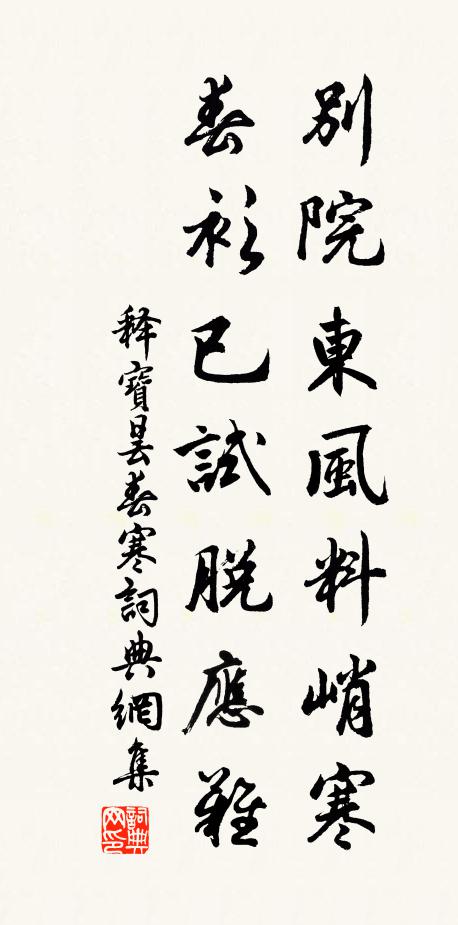 別院東風料峭寒
春衫已試脫應難
释寶曇春寒詞典網集
詞典网印